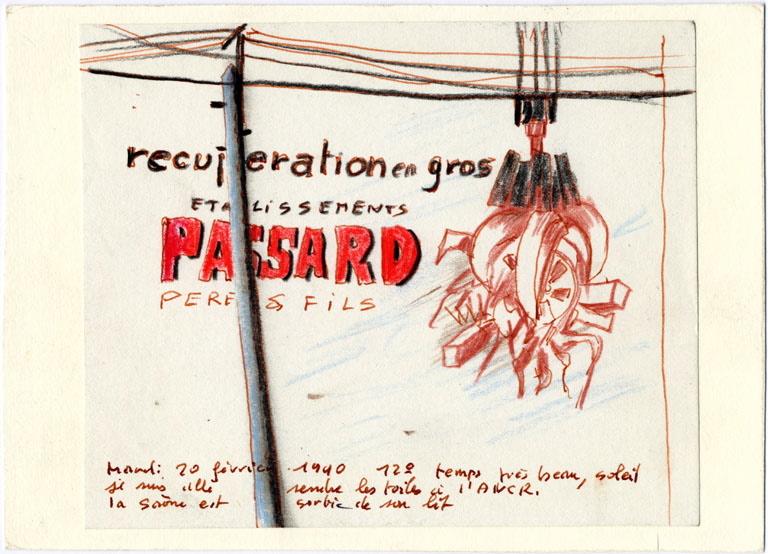 recuperation en gros
ETABLISSEMENTS
PASSARD
PERE & FILS
Mardi 20 février 1990 12° temps très beau, soleil
je suis allé rendre les toiles à l'ANCR.
la saône est sortie de son lit